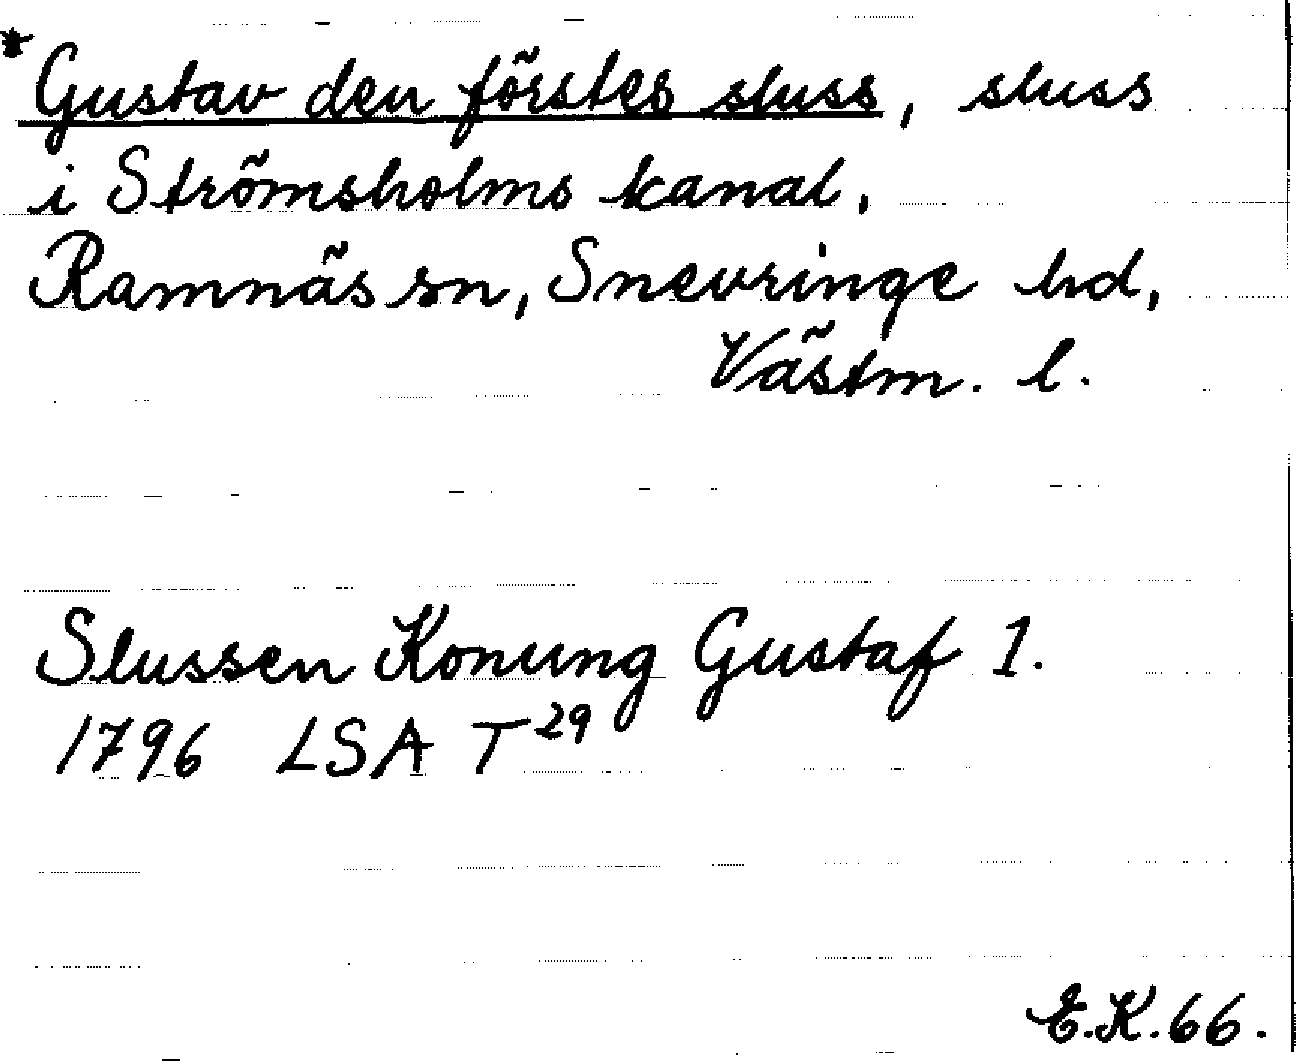 * Gustav den förstes sluss, sluss
i Strömsholms kanal,
Ramnäs sn, Snevringe hd,
Västm. l.
Slussen Konung Gustaf 1.
1796 LSA T²⁹
E.K.66.